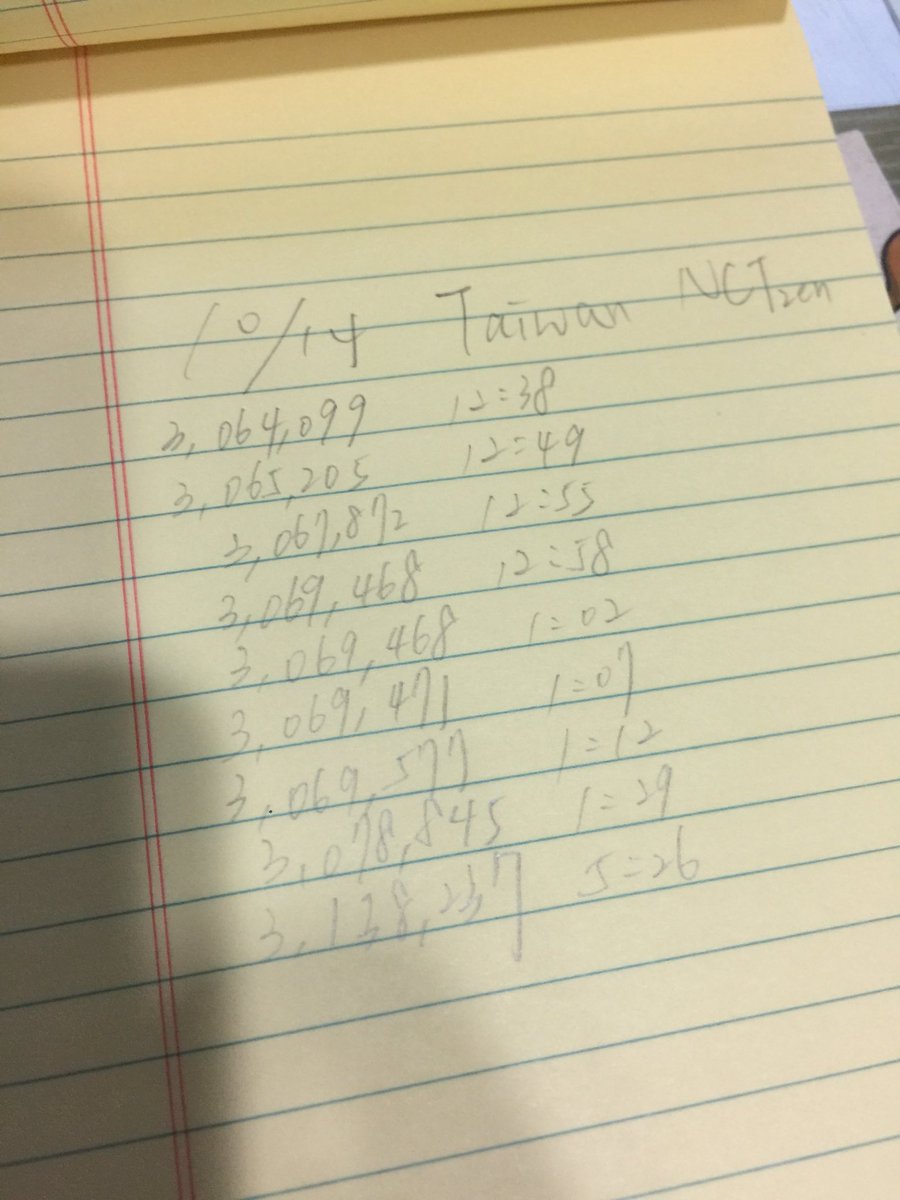 10/14 Taiwan NCTzen
3,064,099 12:38
3,065,205 12:49
3,067,872 12:55
3,069,468 12:58
3,069,468 1:02
3,069,471 1:07
3,069,577 1:12
3,078,845 1:29
3,138,237 5:26